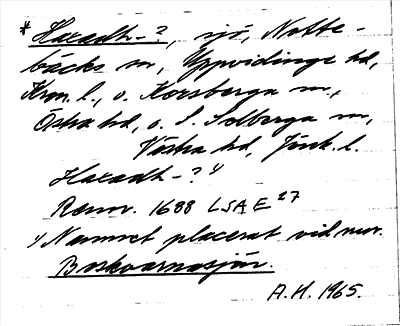 *Haradh-?, sjö, Notte-
bäcks sn, Uppvidinge hd,
Kron. l., o. Korsberga sn,
Östra hd, o. S. Solberga sn,
Västra hd, Jönk. l.
Haradh-?¹⁾
Rann. 1688 LSA E 27
¹⁾ Namnet placerat vid nuv.
Boskvarnasjön.
A.H. 1965.